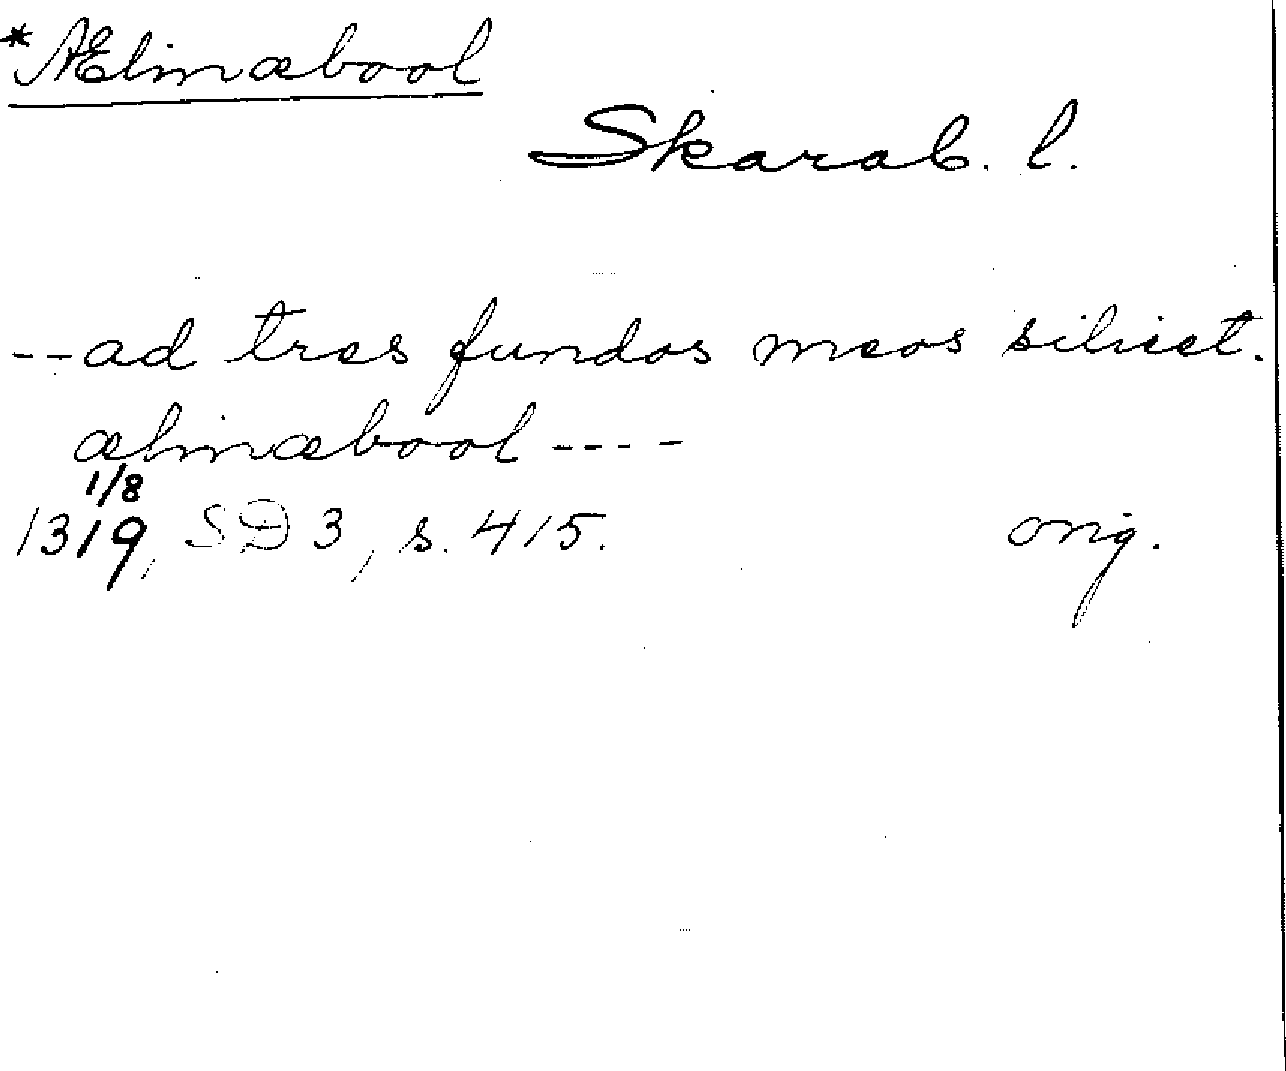 *Ælinæbool
Skarab. l.
--ad tres fundos meos silicet.
ælinæbool ----
1/8
1319, SD 3, s. 415. orig.